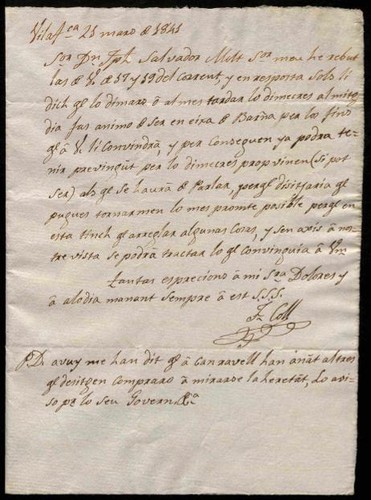 Vilaf.ca 21 mars de 1841
Sor. Dn. Jph. Salvador Milt Sor meu he rebut
las de V. de 17 y 19 del Corent, y en resposta Solo li
dich qe. lo dimars o al mes tardar lo dimecres al mitg
dia fas animo de Ser en eixa de Barna per los fins
qe. a V. li Convindra, y per Conseguen ya podra te-
nir previngut per lo dimecres prop vinen (si pot
ser) als qe. Se haura de Parlar, perque disitjaria qe.
pugues tornarmen lo mes promte posible perqe en
esta tinch qe. arreglar algunas Cosas, y Sen axis a nos-
tre vista Se podra tractar lo qe. Convinguia a Vm
Tantas esprecions a mi Sra. Dolores y
a alodia manant Sempre a est S.S.S.
Fr. Coll
P.D. avuy me han dit qe. a Canravell han anat altres
qe. desitgen Comprar o a mirarse la heretat, Lo avi-
so pa. lo Seu Govern &a